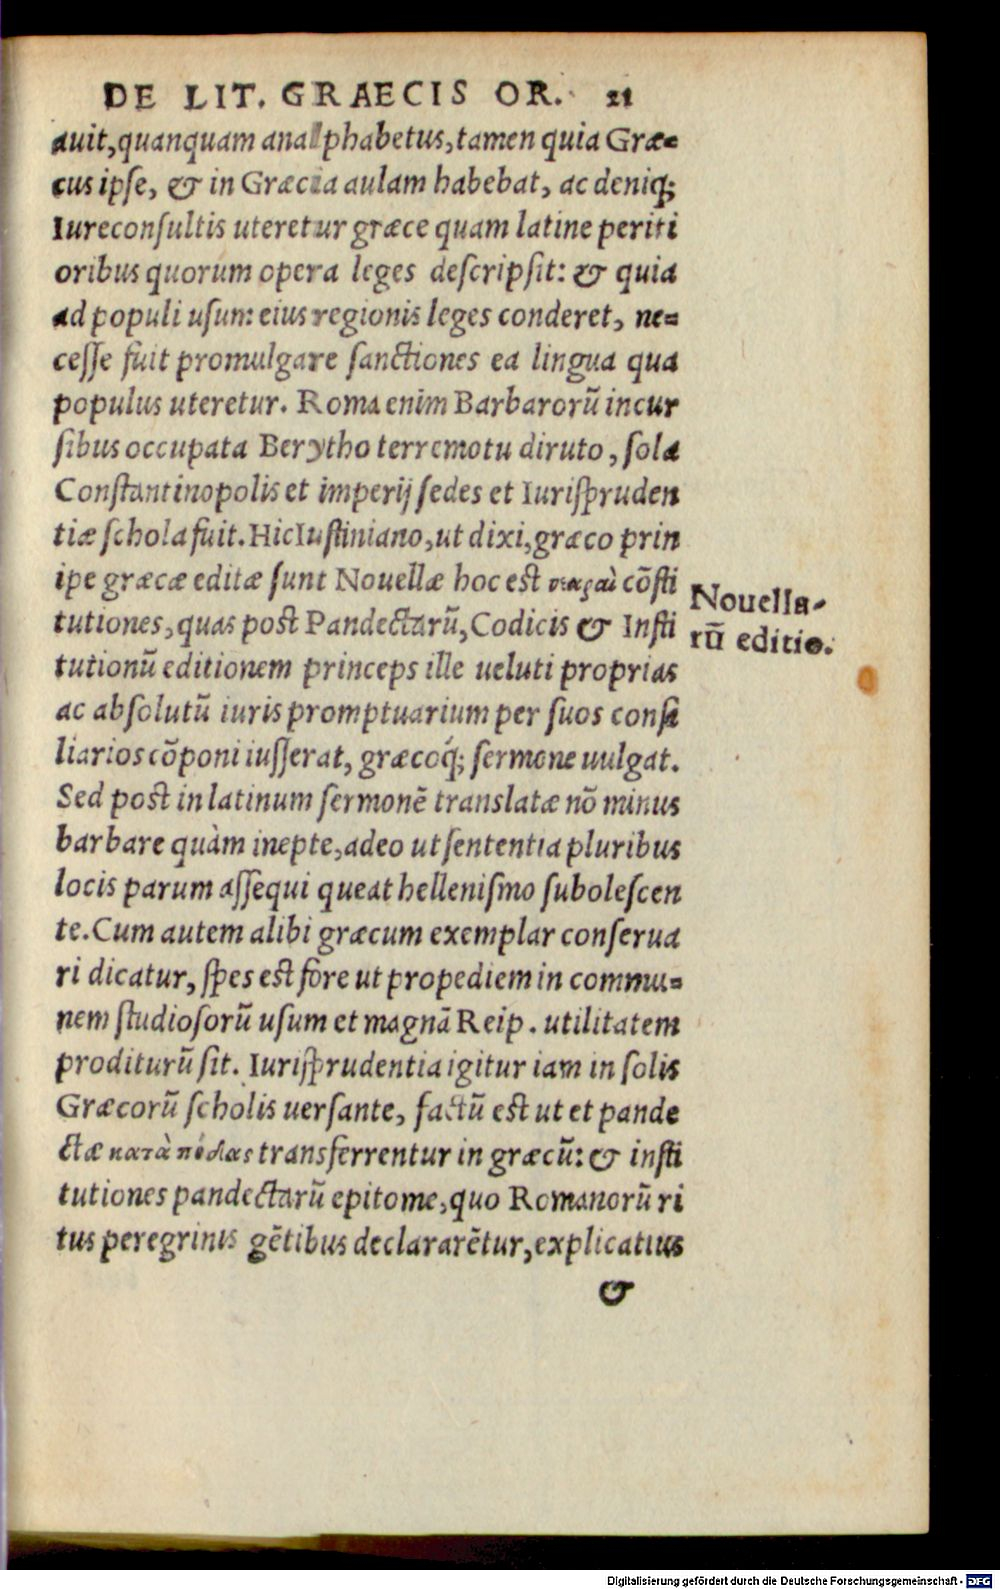 DE LIT. GRAECIS OR. 21
auit, quanquam analphabetus, tamen quia Græ=
cus ipse, & in Græcia aulam habebat, ac deniq;
Iureconsultis uteretur græce quam latine periti
oribus quorum opera leges descripsit: & quia
ad populi usum: eius regionis leges conderet, ne=
cesse fuit promulgare sanctiones ea lingua qua
populus uteretur. Roma enim Barbarorū incur
sibus occupata Berytho terremotu diruto, sola
Constantinopolis et imperij sedes et Iurispruden
tiæ schola fuit. Hic Iustiniano, ut dixi, græco prin
ipe græcæ editæ sunt Nouellæ hoc est cōsti
tutiones, quas post Pandectarū, Codicis & Insti
tutionū editionem princeps ille ueluti proprias
ac absolutū iuris promptuarium per suos consi
liarios cōponi iusserat, græcoq́; sermone uulgat.
Sed post in latinum sermonē translatæ nō minus
barbare quàm inepte, adeo ut sententia pluribus
locis parum assequi queat hellenismo subolescen
te. Cum autem alibi græcum exemplar conserua
ri dicatur, spes est fore ut propediem in commu=
nem studiosorū usum et magnā Reip. utilitatem
proditurū sit. Iurisprudentia igitur iam in solis
Græcorū scholis uersante, factū est ut et pande
ctæ κατὰ πόδας transferrentur in græcū: & insti
tutiones pandectarū epitome, quo Romanorū ri
tus peregrinis gētibus declararētur, explicatius
&
Nouella-
rū editio.
Digitalisierung gefördert durch die Deutsche Forschungsgemeinschaft - DFG